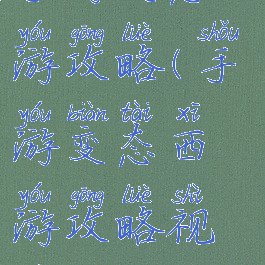 yóu gōng lüè shǒu
游攻略(手
yóu biàn tài xī
游变态西
yóu gōng lüè shì
游攻略视